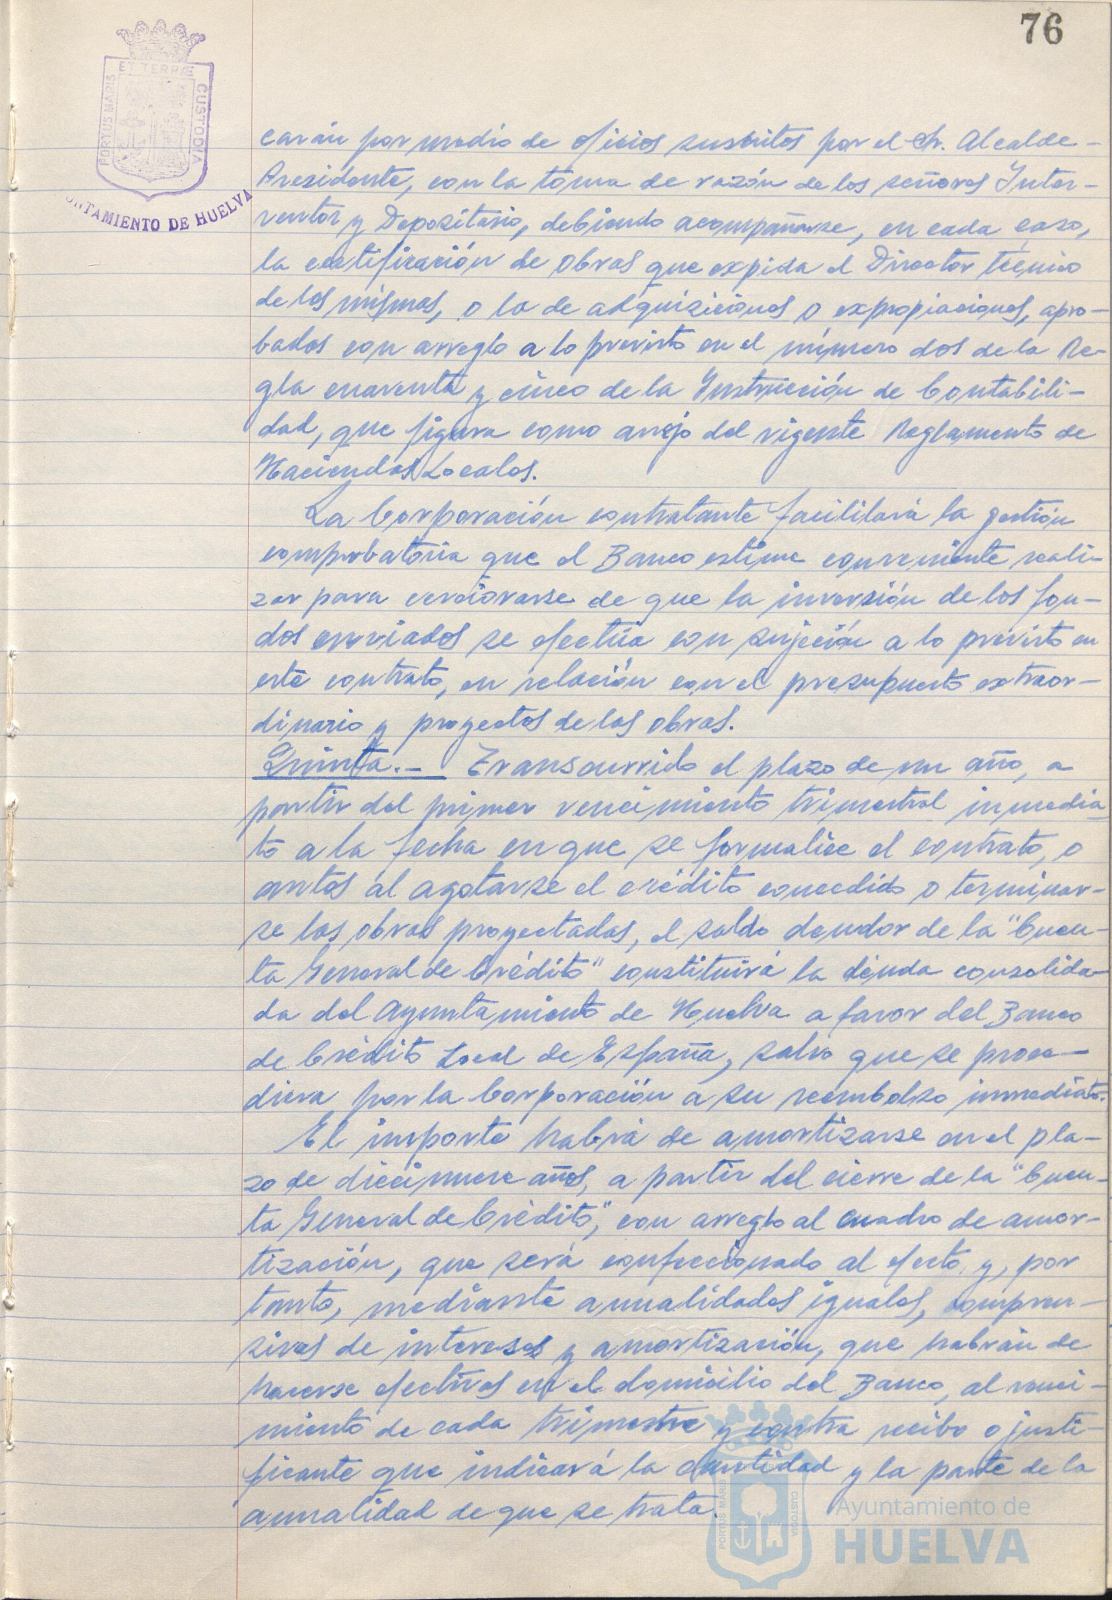 76
PORTUS MARIS ET TERRÆ CUSTODIA
UNTAMIENTO DE HUELVA
carán por medio de oficios suscritos por el Sr. Alcalde-
Presidente, con la toma de razón de los señores Inter-
ventor y Depositario, debiendo acompañarse, en cada caso,
la certificación de obras que expida el Director técnico
de los mismas, o la de adquisiciones o expropiaciones, apro-
badas con arreglo a lo previsto en el número dos de la Re-
gla cuarenta y cinco de la Instrucción de Contabili-
dad, que figura como anejo del vigente Reglamento de
Haciendas Locales.
La Corporación contratante facilitará la gestión
comprobatoria que el Banco estime conveniente reali-
zar para cerciorarse de que la inversión de los fon-
dos enviados se efectúa con sujeción a lo previsto en
este contrato, en relación con el presupuesto extraor-
dinario y proyectos de las obras.
Quinta.- Transcurrido el plazo de un año, a
partir del primer vencimiento trimestral inmedia
to a la fecha en que se formalice el contrato, o
antes al agotarse el crédito concedido o terminar-
se las obras proyectadas, el saldo deudor de la "Cuen-
ta General de Crédito" constituirá la deuda consolida-
da del Ayuntamiento de Huelva a favor del Banco
de Crédito Local de España, salvo que se proce-
diera por la Corporación a su reembolso inmediato.
El importe habrá de amortizarse en el pla-
zo de diecinueve años, a partir del cierre de la "Cuen-
ta General de Crédito", con arreglo al cuadro de amor-
tización, que será confeccionado al efecto, y, por
tanto, mediante anualidades iguales, compren-
sivas de intereses y amortización, que habrán de
hacerse efectivas en el domicilio del Banco, al venci-
miento de cada trimestre y contra recibo o justi-
ficante que indicará la cantidad y la parte de la
anualidad de que se trata.
PORTUS MARIS CUSTODIA
Ayuntamiento de
HUELVA